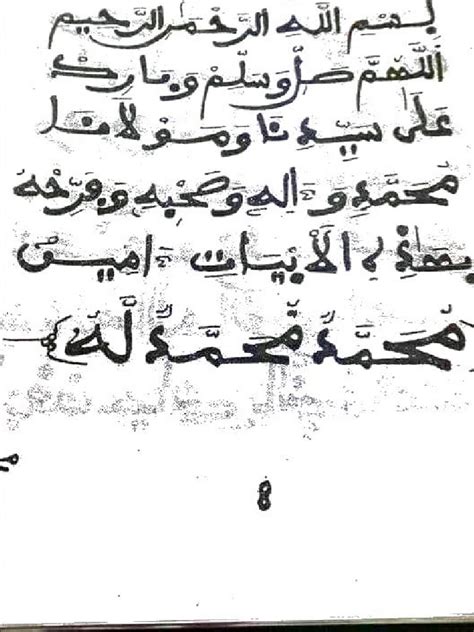 بِسْمِ اللَّهِ الرَّحْمَنِ الرَّحِيمِ
اَللَّهُمَّ صَلِّ وَسَلِّمْ وَبَارِكْ
عَلَى سَيِّدِنَا وَمَوْلَانَا
مُحَمَّدٍ وَءَالِهِ وَصَحْبِهِ وَفَرِّحْهُ
بِهَذِهِ الْأَبْيَاتِ ءَامِينْ
مُحَمَّدٌ مُحَمَّدٌ لَهُ